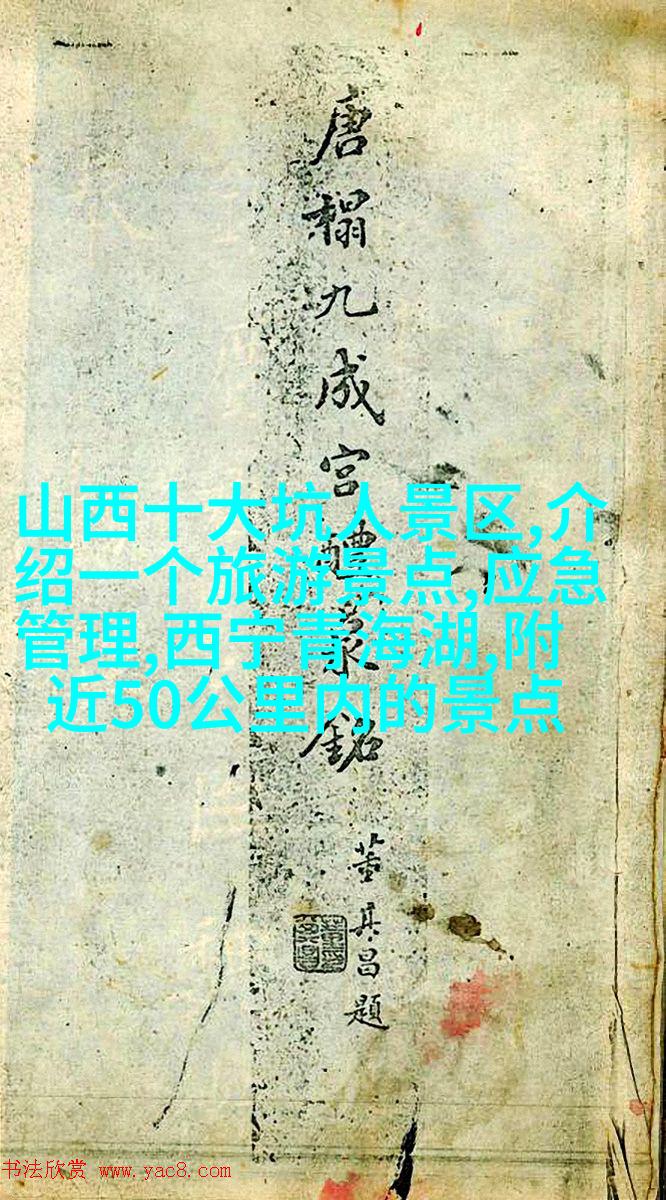 唐榻九成宫醴泉銘
董其昌題
山西十大坑人景区,介
绍一个旅游景点,应急
管理,西宁青海湖,附
近50公里内的景点
书法欣赏 www.yac8.com